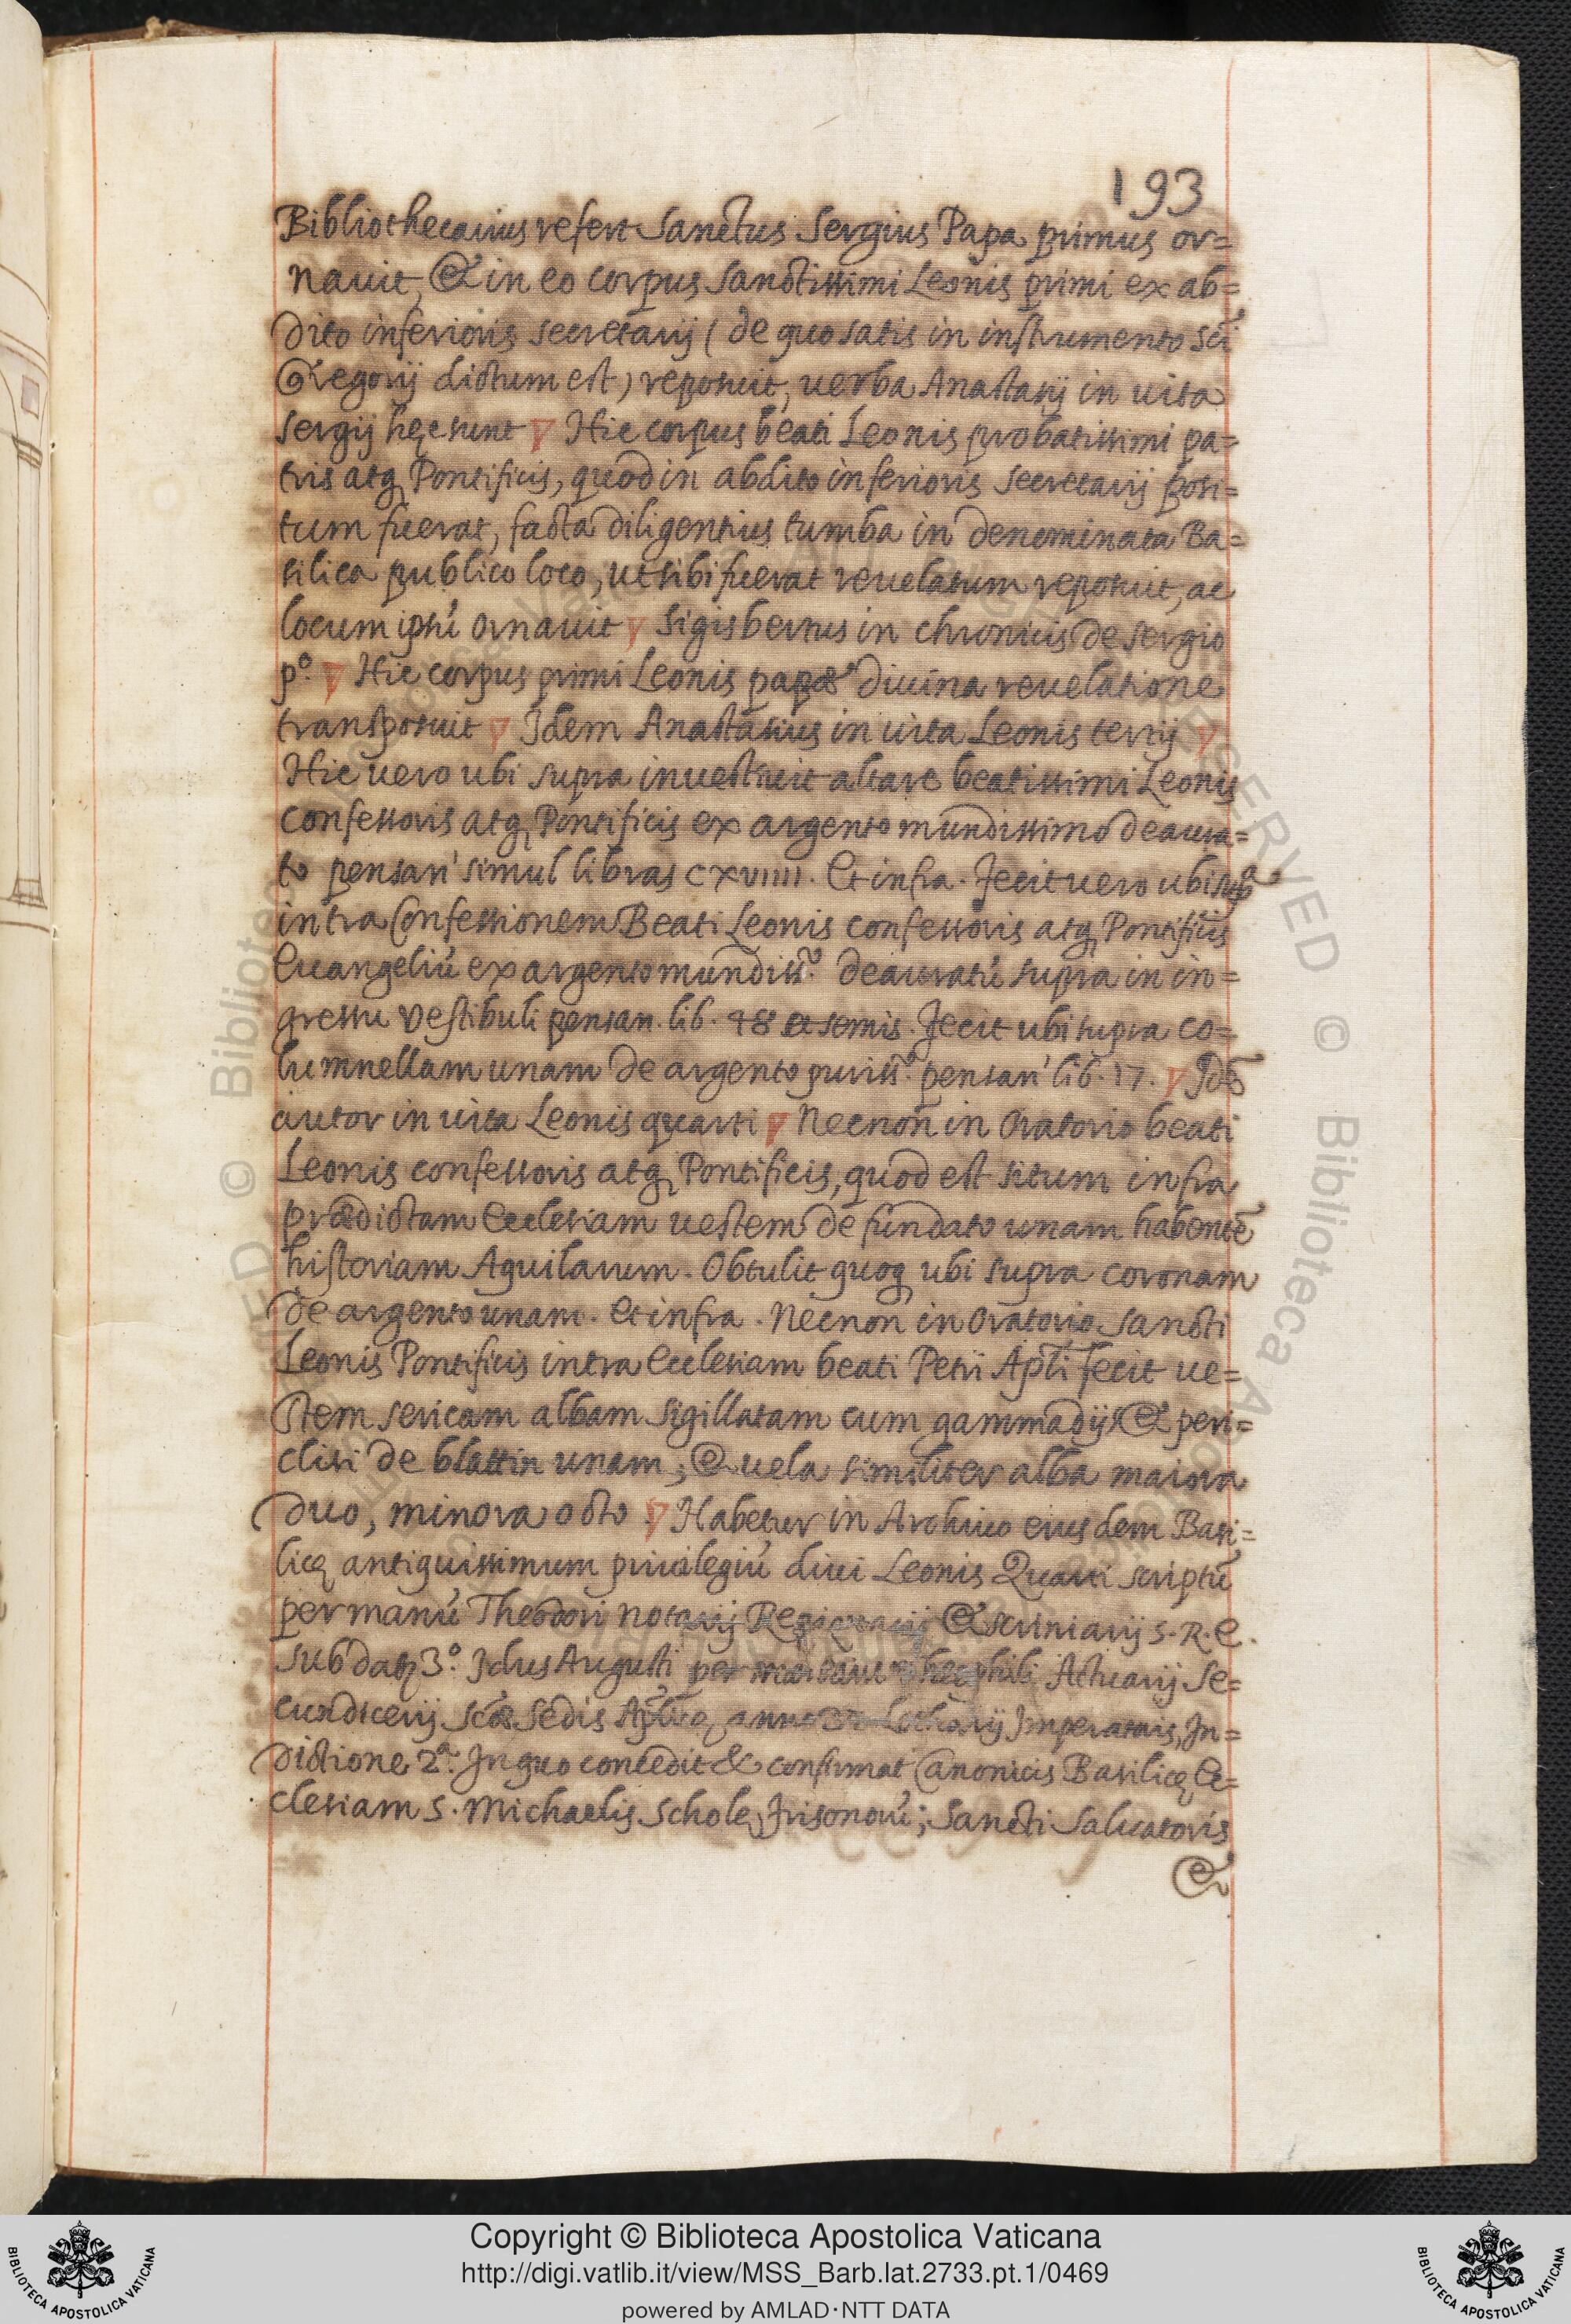 193
Bibliothecarius refert Sanctus Sergius Papa primus or=
nauit, & in eo corpus sanctissimi Leonis primi ex ab=
dito inferioris secretarij (de quo satis in instrumento sci
Gregorij dictum est) reposuit, uerba Anastasij in uita
Sergij hęc sunt Hic corpus beati Leonis probatissimi pa=
tris atq Pontificis, quod in abdito inferioris secretarij posi=
tum fuerat, facta diligentius tumba in denominata Ba=
silica publico loco, ut sibi fuerat reuelatum reposuit, ac
locum ipsū ornauit Sigisbertus in chronicis de Sergio
p.º Hic corpus primi Leonis papæ diuina reuelatione
transposuit Idem Anastasius in uita Leonis tertij
Hic uero ubi supra inuestiuit altare beatissimi Leonis
confessoris atq Pontificis ex argento mundissimo deaura=
to pensan' simul libras cxviiii. Et infra. Fecit uero ubi supª
intra Confessionem Beati Leonis confessoris atq Pontificis
Euangeliū ex argento mundiss.º deauratū supra in in=
gressu vestibuli pensan. lib. 48 et semis. Fecit ubi supra co=
lumnellam unam de argento puriss.º pensan' lib. 17. Idē
autor in uita Leonis quarti Necnon in Oratorio beati
Leonis confessoris atq Pontificis, quod est situm infra
prædictam Ecclesiam uestem de fundato unam habentē
historiam Aquilarum. Obtulit quoq ubi supra coronam
de argento unam. Et infra. Necnon in Oratorio sancti
Leonis Pontificis intra Ecclesiam beati Petri Apli fecit ue=
stem sericam albam sigillatam cum gammadijs & peri=
clisi de blattin unam, & uela similiter alba maiora
duo, minora octo. Habetur in Archiuo eiusdem Basi=
licę antiquissimum priuilegiū diui Leonis Quarti scriptū
per manū Theodori notarij Regionarij & scriniarij S. R. E.
sub datę 3.º Idus Augusti per manus Theophili Actuarij Se=
cundicerij scæ Sedis Aplicę anno Lotharij Imperatoris, In=
dictione 2.ª In quo concedit & confirmat Canonicis Basilicę Ec=
clesiam S. Michaelis Scholę Frisonorū; Sancti Saluatoris
&
© Biblioteca Apostolica Vaticana ALL RIGHTS RESERVED
Copyright © Biblioteca Apostolica Vaticana
http://digi.vatlib.it/view/MSS_Barb.lat.2733.pt.1/0469
powered by AMLAD·NTT DATA
BIBLIOTECA APOSTOLICA VATICANA
BIBLIOTECA APOSTOLICA VATICANA